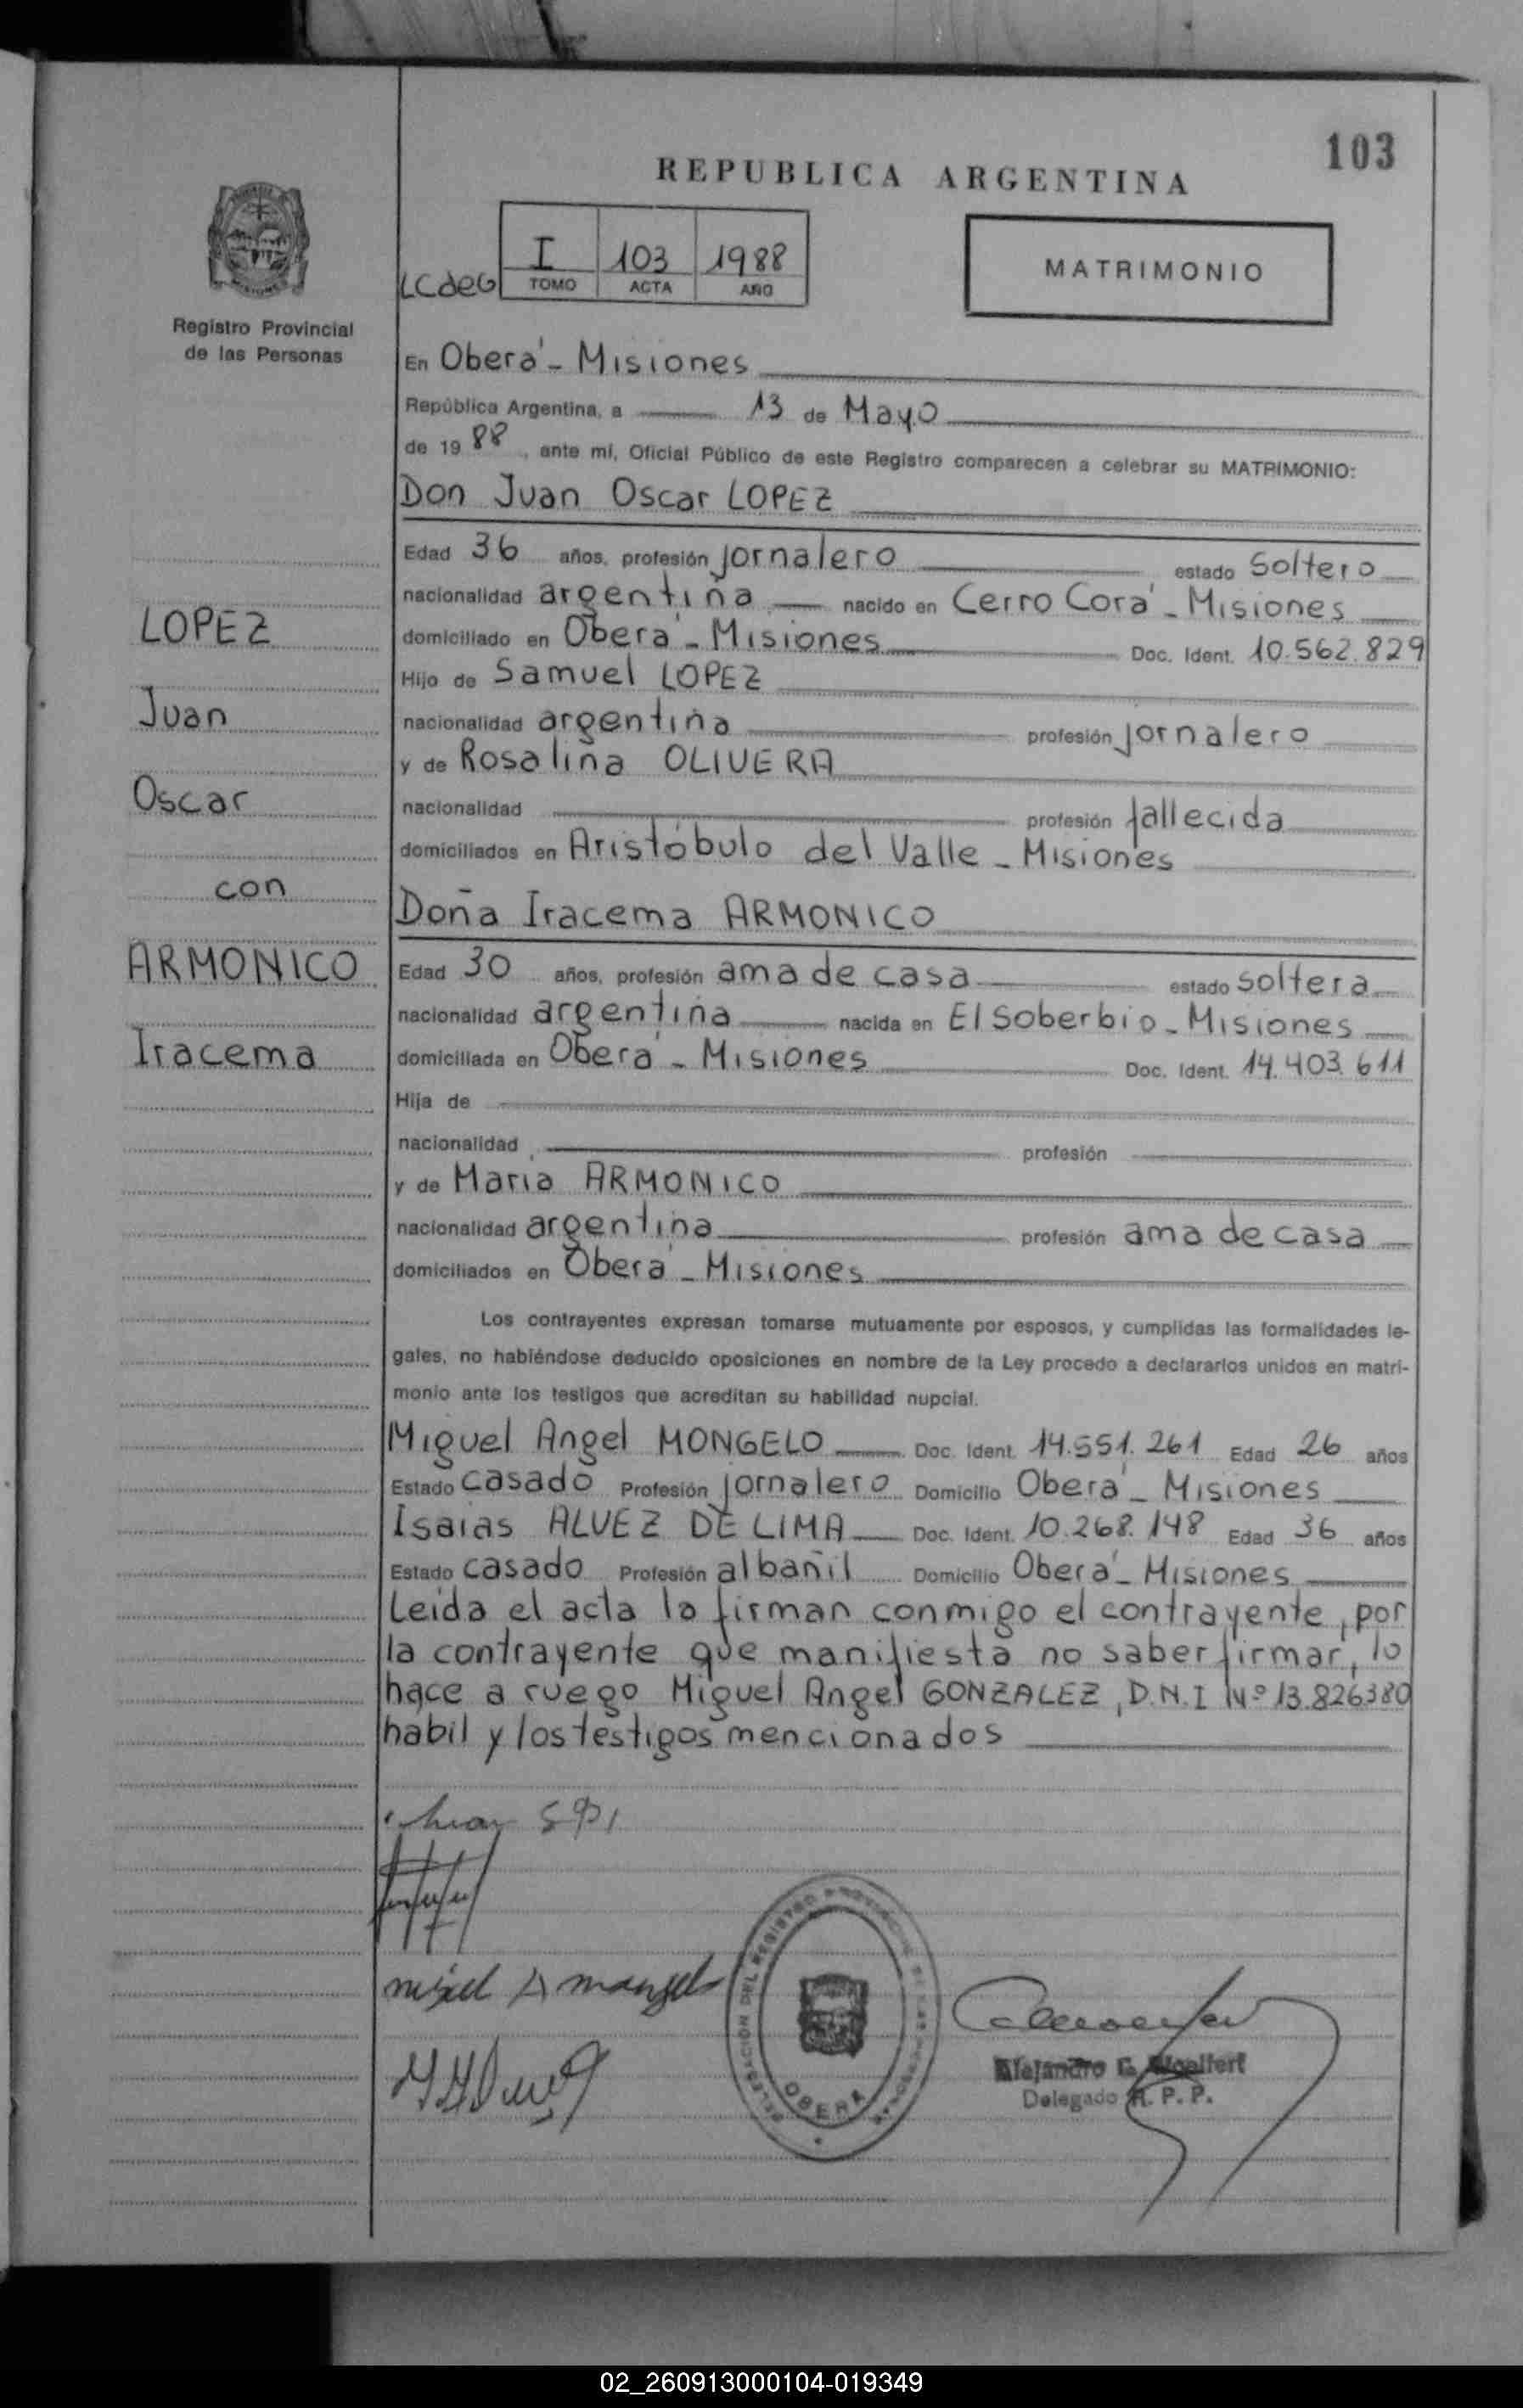 103
REPUBLICA ARGENTINA
LCdeG
I 103 1988
TOMO ACTA AÑO
MATRIMONIO
Registro Provincial
de las Personas
LOPEZ
Juan
Oscar
con
ARMONICO
Iracema
En Oberá - Misiones
República Argentina, a 13 de Mayo
de 1988, ante mí, Oficial Público de este Registro comparecen a celebrar su MATRIMONIO:
Don Juan Oscar LOPEZ
Edad 36 años, profesión jornalero estado soltero
nacionalidad argentina nacido en Cerro Corá - Misiones
domiciliado en Oberá - Misiones Doc. Ident. 10.562.829
Hijo de Samuel LOPEZ
nacionalidad argentina profesión jornalero
y de Rosalina OLIVERA
nacionalidad profesión fallecida
domiciliados en Aristóbulo del Valle - Misiones
Doña Iracema ARMONICO
Edad 30 años, profesión ama de casa estado soltera
nacionalidad argentina nacida en El Soberbio - Misiones
domiciliada en Oberá - Misiones Doc. Ident. 14.403.611
Hija de
nacionalidad profesión
y de Maria ARMONICO
nacionalidad argentina profesión ama de casa
domiciliados en Oberá - Misiones
Los contrayentes expresan tomarse mutuamente por esposos, y cumplidas las formalidades le-
gales, no habiéndose deducido oposiciones en nombre de la Ley procedo a declararlos unidos en matri-
monio ante los testigos que acreditan su habilidad nupcial.
Miguel Angel MONGELO Doc. Ident. 14.551.261 Edad 26 años
Estado casado Profesión jornalero Domicilio Oberá - Misiones
Isaias ALVEZ DE LIMA Doc. Ident. 10.268.148 Edad 36 años
Estado casado Profesión albañil Domicilio Oberá - Misiones
Leida el acta la firman conmigo el contrayente, por
la contrayente que manifiesta no saber firmar, lo
hace a ruego Miguel Angel GONZALEZ, D.N.I Nº 13.826380
habil y los testigos mencionados
DELEGACIÓN DEL REGISTRO PROVINCIAL DE LAS PERSONAS
OBERA
Alejandro G.
Delegado R. P. P.
02_260913000104-019349